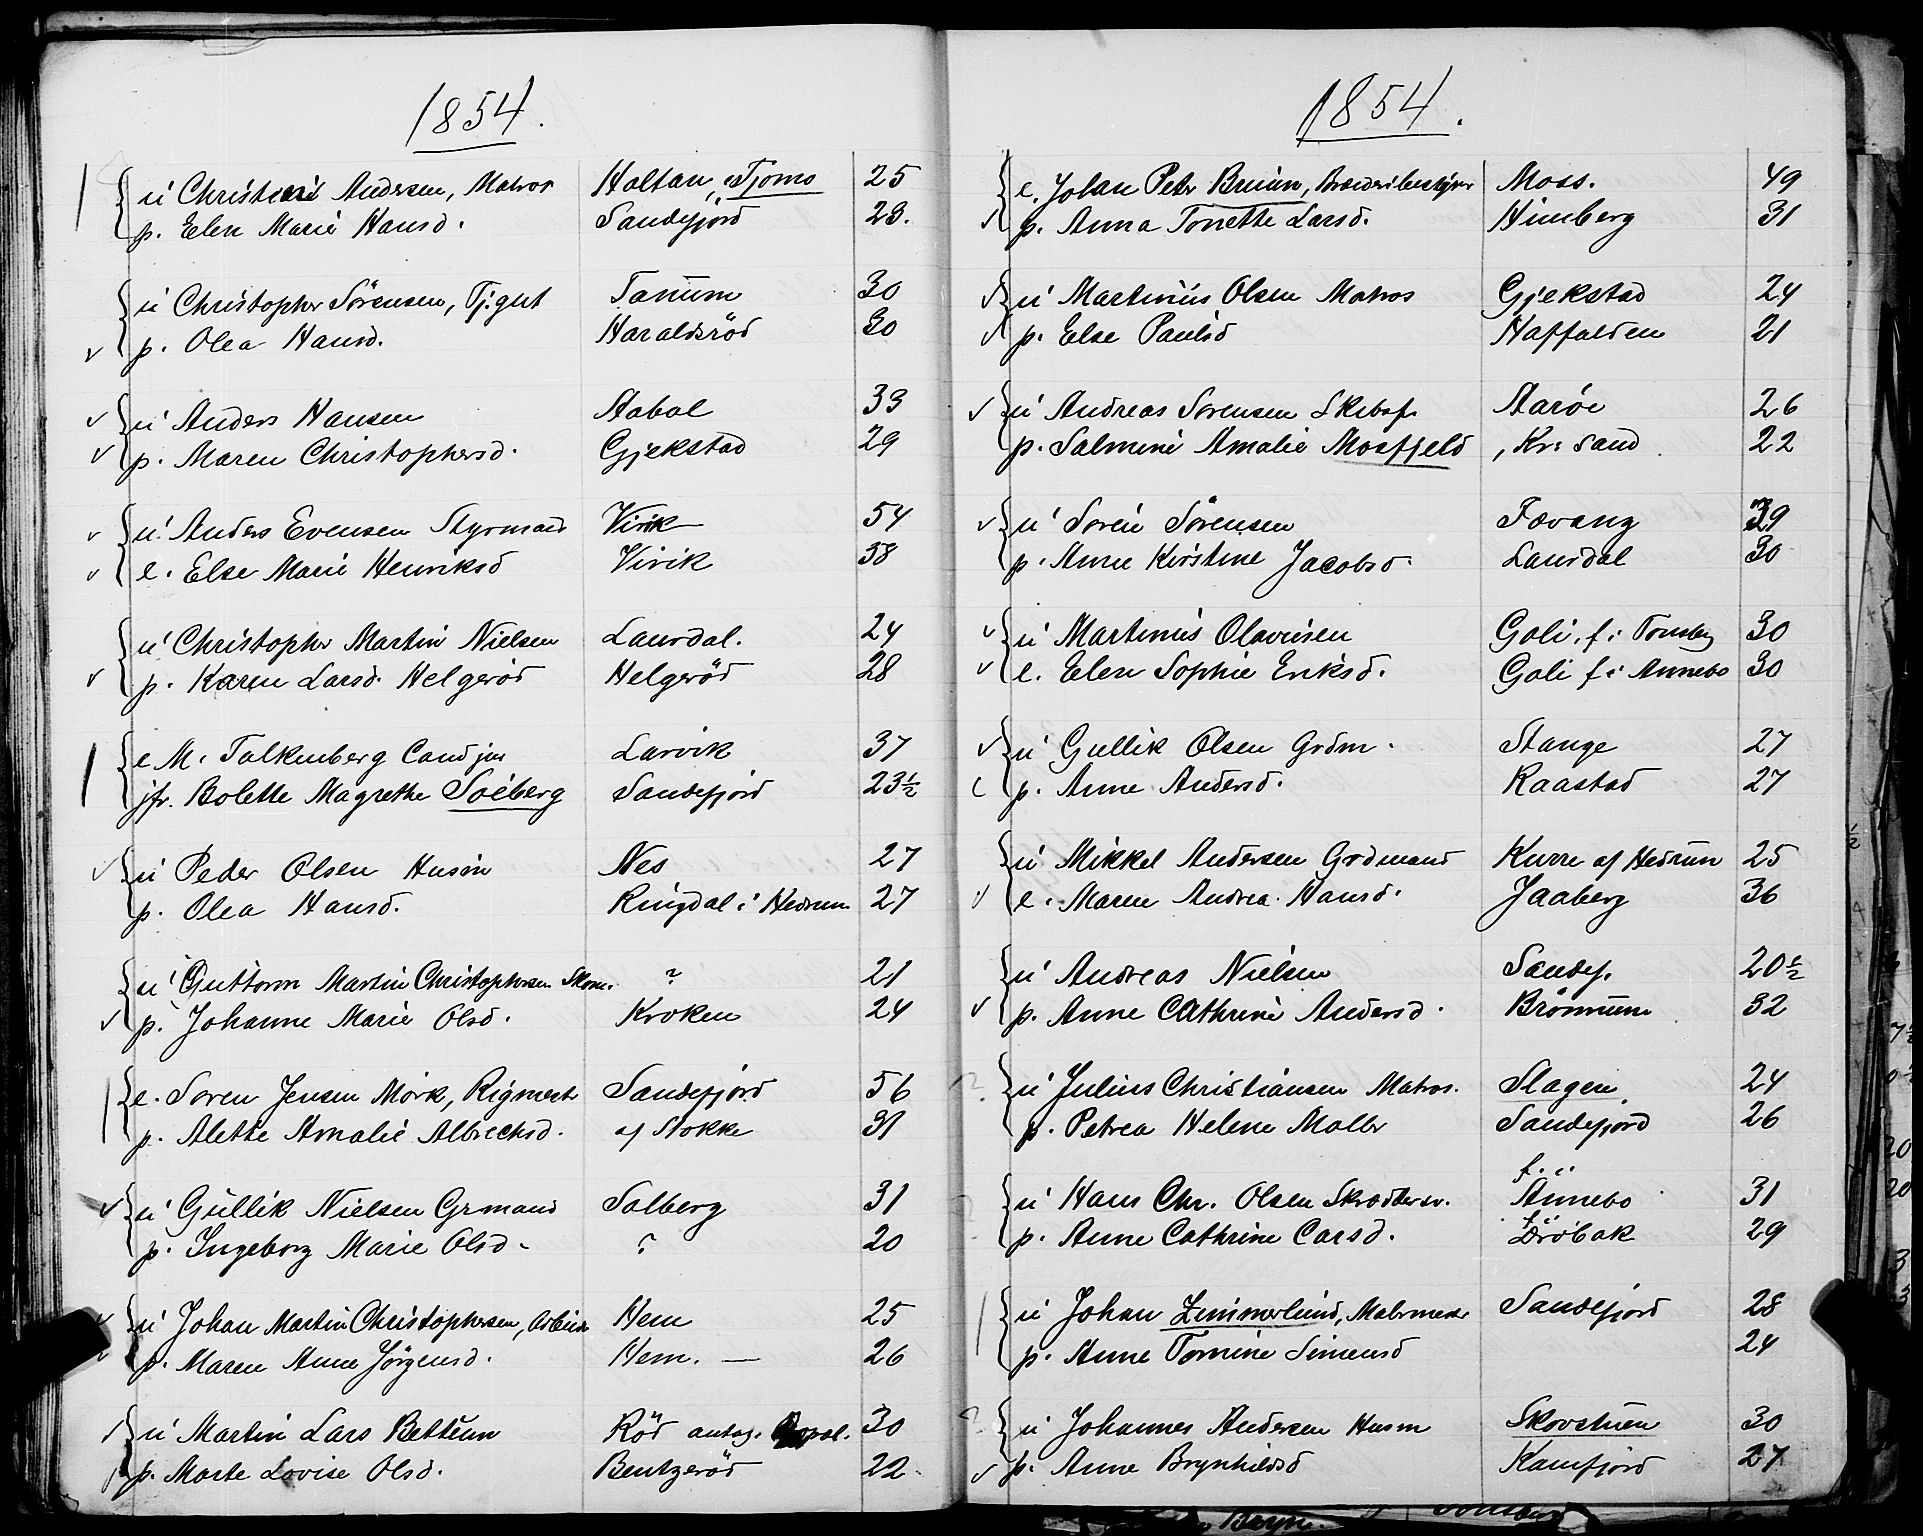 1854.
u Christian Andersen, Matros Holtan, Tjomo 25
p. Elen Marie Hansd. Sandefjord 23.
u Christopher Sörensen, Tj.gut Tanum 30
p. Olea Hansd. Haraldsröd 30
u Anders Hansen Aabol 33
p. Maren Christophersd. Gjekstad 29
u. Anders Evensen Styrmand Virik 54
e. Else Marie Henriksd Virik 38
u Christopher Martin Nielsen Lauvdal. 24
p. Karen Larsd. Helgeröd Helgeröd 28
e M. Falkenberg Cand jur Larvik 37
jfr. Bolette Magrethe Soeberg Sandefjord 23½
u Peder Olsen Husm Nes 27
p. Olea Hansd. Ringdal i Hedrum 27
u Guttorm Martin Christophersen Skom. ? 21
p. Johanne Marie Olsd. Kroken 24
e. Soren Jensen Mörk, Rigmestr Sandefjord 56
p. Alette Amalie Albrechtsd. af Stokke 31
u Gullik Nielsen Grmand Solberg 31
p. Ingeborg Marie Olsd. ? 20
u Johan Martin Christophersen, Arbeider Hem 25
p. Maren Anne Jörgensd. Hem. — 26
u Martin Lars Bettum Röd antag. 30
p. Marte Lovise Olsd. Bentzeröd 22
1854.
e. Johan Peter Bruun, Brænderibestyrer Moss. 49
p. Anna Tonette Larsd. Himberg 31
u Martinius Olsen Matros Gjekstad 24
p. Else Paulsd Haffalden 21
u Andreas Sorensen Skibsf. Aaröe 26
p. Salmine Amalie Mosfjeld , Kr: sand 22
u Soren Sörensen Fævang 39
p. Anne Kirstine Jacobsd. Lauvdal 30
u Martinus Olavesen Goli, f i Tonsberg 30
e. Elen Sophie Eriksd. Goli f i Annebo 30
u Gullik Olsen Grdm. Stange 27
p. Anne Andersd. Raastad 27
u Mikkel Andersen Grdmand Kurre af Hedrum 25
e. Maren Andrea Hansd. Jaaberg 36
u Andreas Nielsen Sandef. 20½
p. Anne Cathrine Andersd. Brönnum 32
u Julius Christiansen Matros. Slagen 24
p. Petrea Helene Moller Sandefjord 26
u Hans Chr. Olsen Skræddersv. f. i Annebo 31
p. Anne Cathrine Carsd. f i Dröbak 29
u Johan Zimmerlund, Malermester Sandefjord 28
p. Anne Tomine Simensd 24
u Johannes Andersen Husm Skovstuen 30
p. Anne Brynhildsd Kamfjord 27